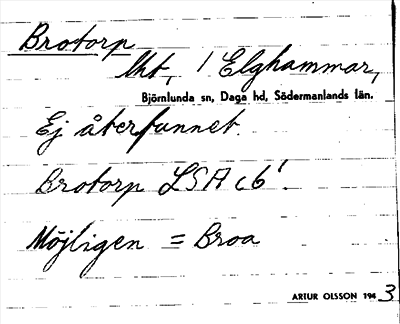 Brotorp
Lht, / Elghammar,
Björnlunda sn, Daga hd, Södermanlands län.
Ej återfunnet.
Brotorp LSA c6!
Möjligen = Broa
ARTUR OLSSON 1943